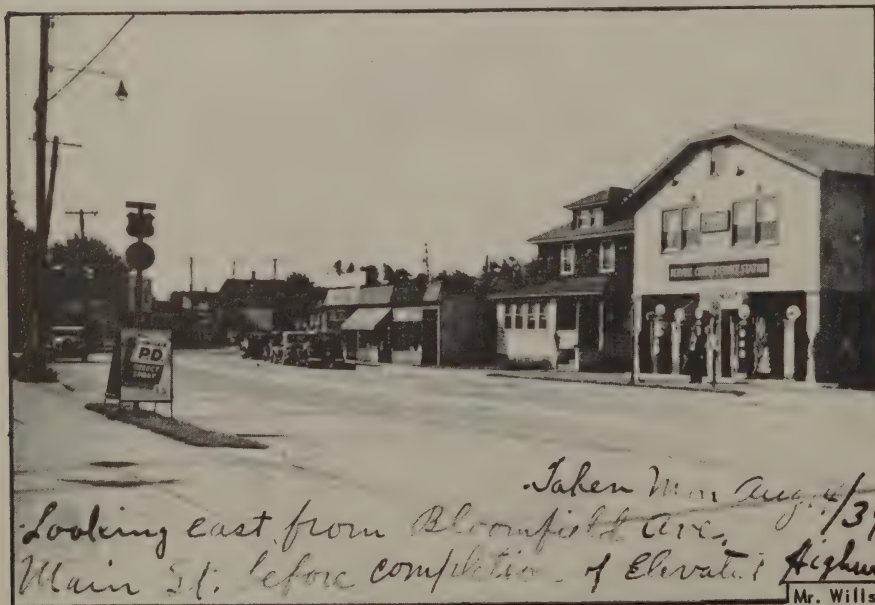 PD
INSECT
SPRAY
SERVICE STATION
Taken Mon Aug. 4/3
Looking east from Bloomfield Ave,
Main St. before completion of Elevated Highw
Mr. Wills